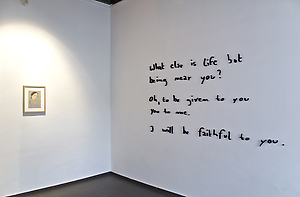 What else is life but
being near you?
Oh, to be given to you
you to me.
I will be faithful to you.